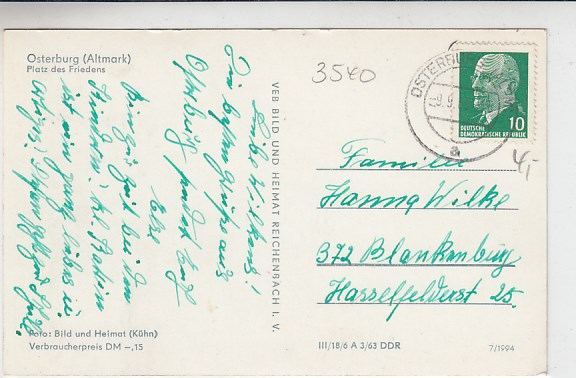 Osterburg (Altmark)
Platz des Friedens
Liebe Wilkens!
Die besten Grüße aus
Osterburg sendet Euch
Else
Bin zur Zeit bei den
Kindern.
ist ein ganz liebes u.
VEB BILD UND HEIMAT REICHENBACH I. V.
3540
OSTERBU
9.9.
a
DEUTSCHE
DEMOKRATISCHE REPUBLIK
10
4,-
Familie
Hanna Wilke
372 Blankenburg
Hasselfelderst 25.
Foto: Bild und Heimat (Kühn)
Verbraucherpreis DM –,15
III/18/6 A 3/63 DDR
7/1994